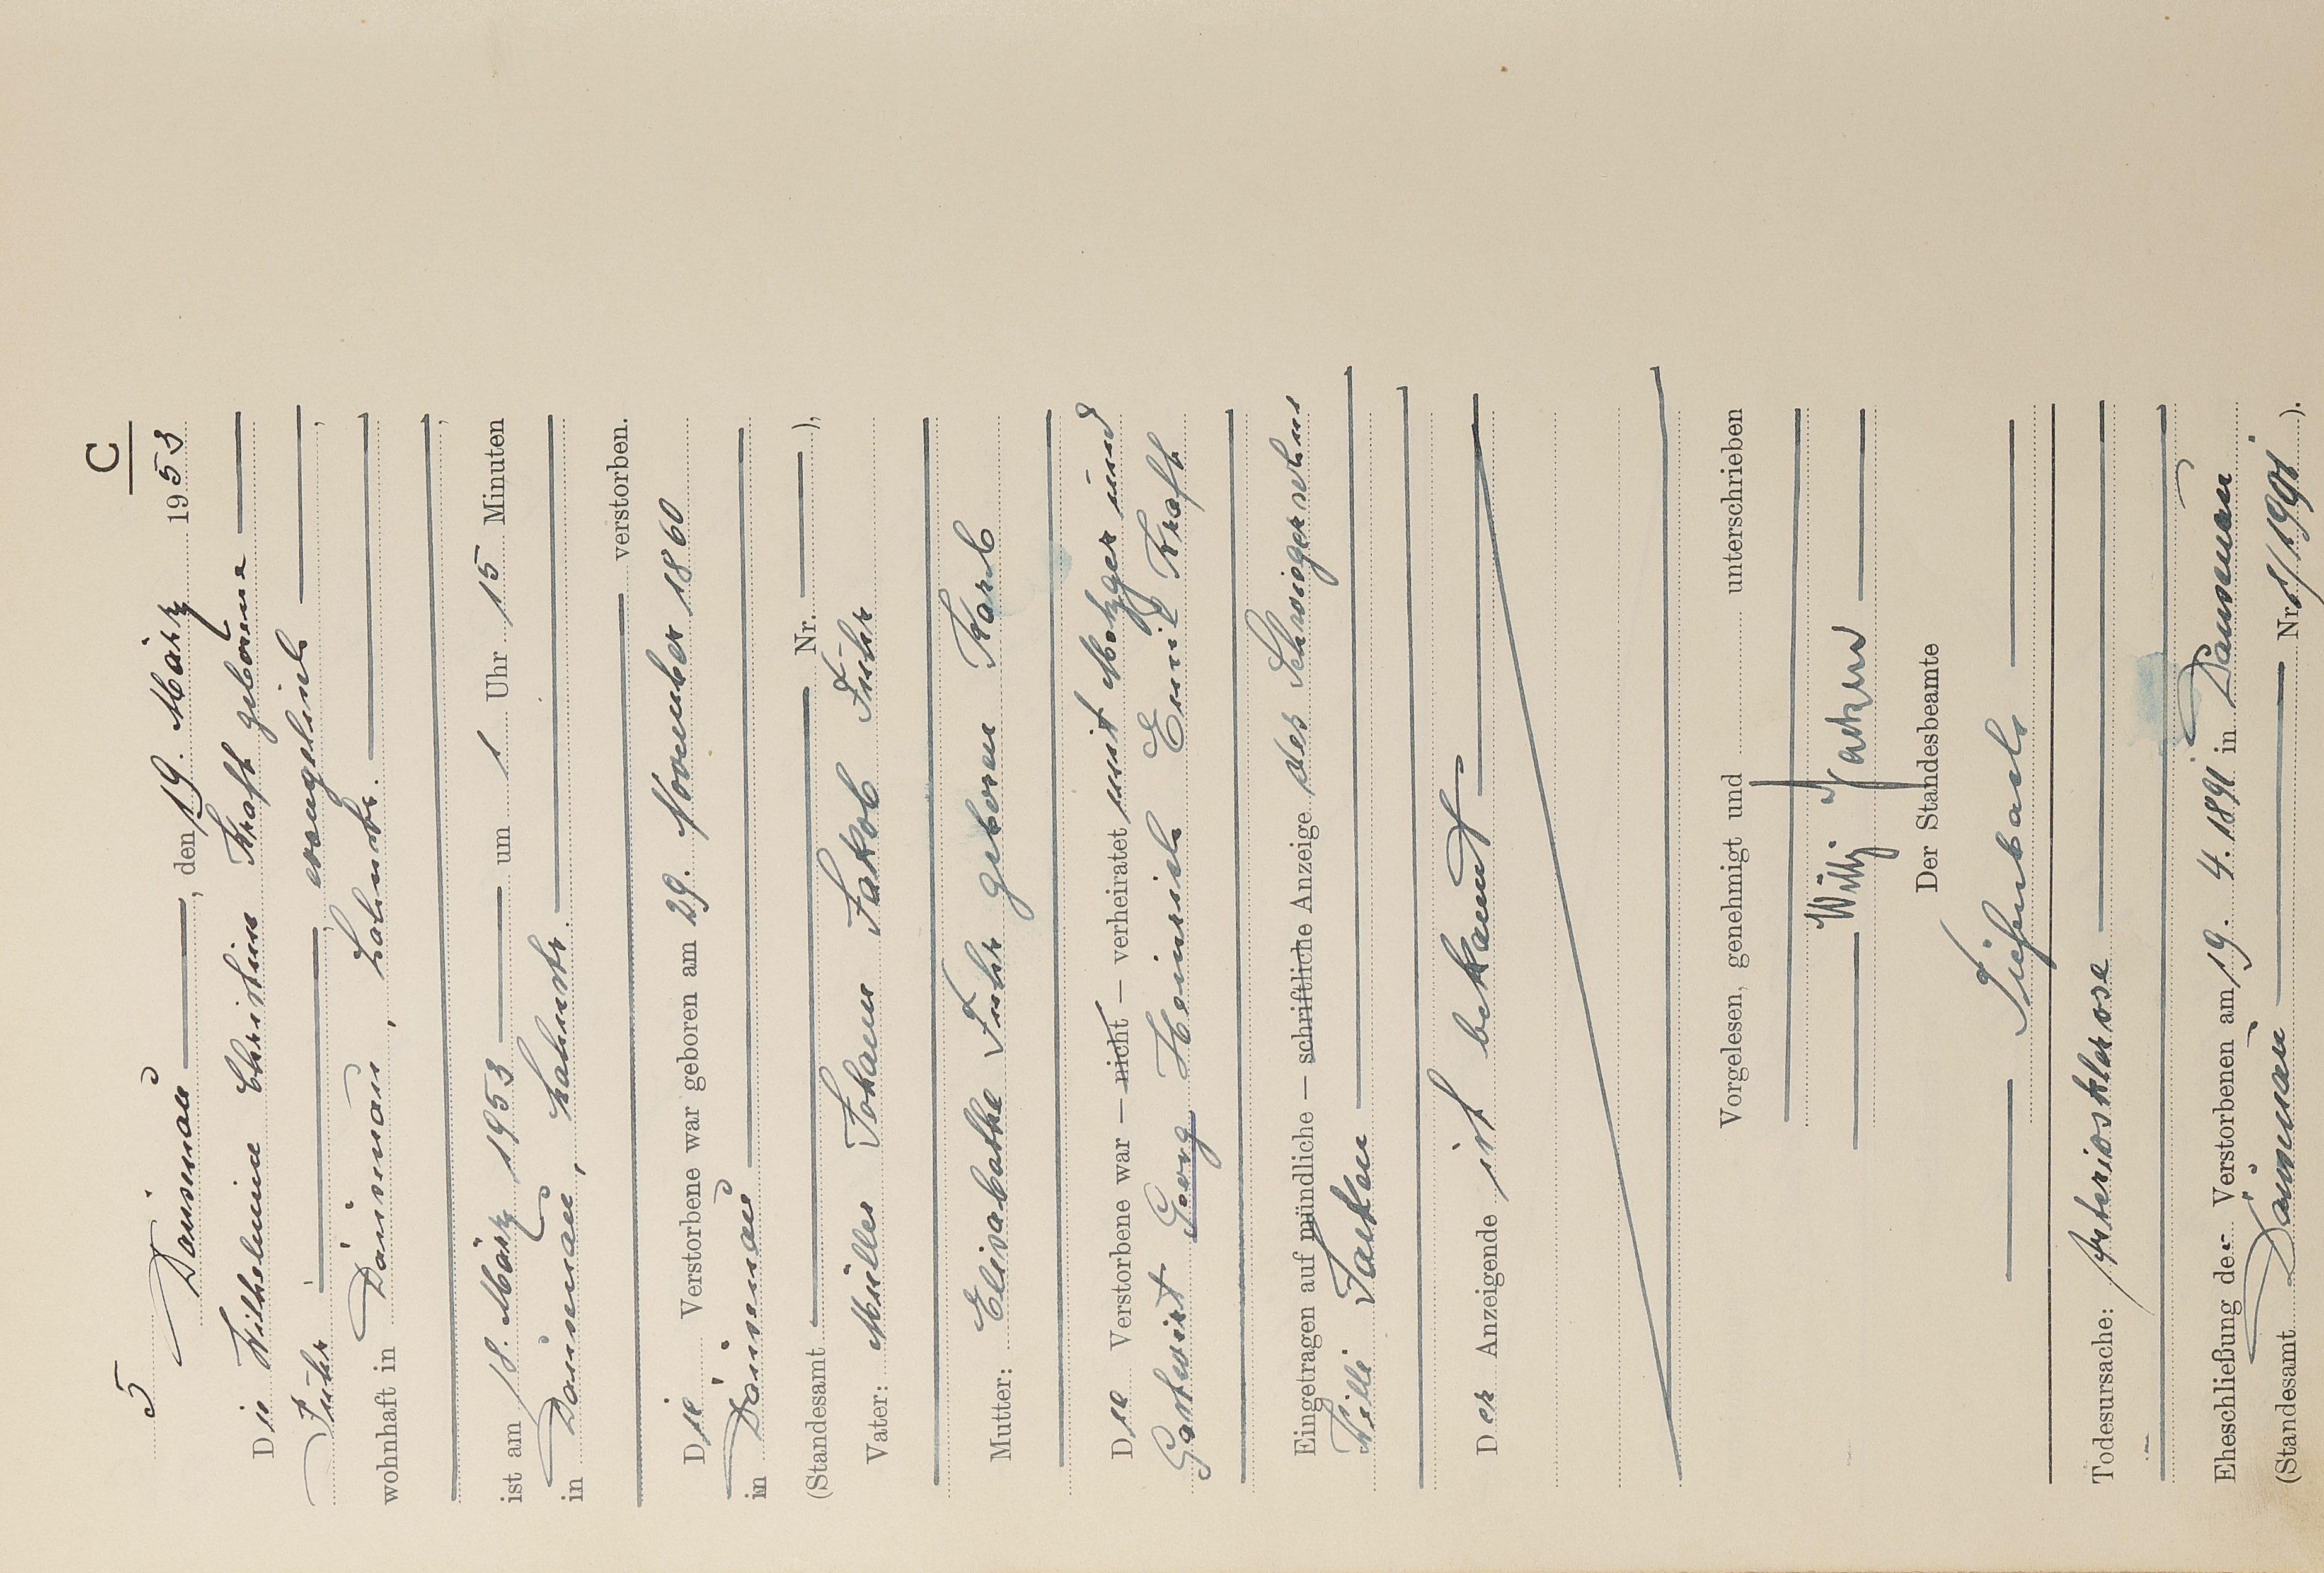 C
5
Dausenau, den 19. März 1953
Die Wilhelmine Christine Kraft geborene
Fuhr, evangelisch,
wohnhaft in Dausenau, Lahnstr.,
ist am 18. März 1953 um 1 Uhr 15 Minuten
in Dausenau, Lahnstr.
verstorben.
Die Verstorbene war geboren am 29. November 1860
in Dausenau
(Standesamt Nr. ),
Vater: Müller Johann Jakob Fuhr
Mutter: Elisabethe Fuhr geborene Karb
Die Verstorbene war — nicht — verheiratet mit Metzger und
Gastwirt Georg Heinrich Emil Kraft
Eingetragen auf mündliche — schriftliche Anzeige des Schwiegersohns
Willi
Der Anzeigende ist bekannt
Vorgelesen, genehmigt und unterschrieben
Willy
Der Standesbeamte
Todesursache: Arteriosklerose
Eheschließung der Verstorbenen am 19. 4. 1891 in Dausenau
(Standesamt Dausenau Nr. ).